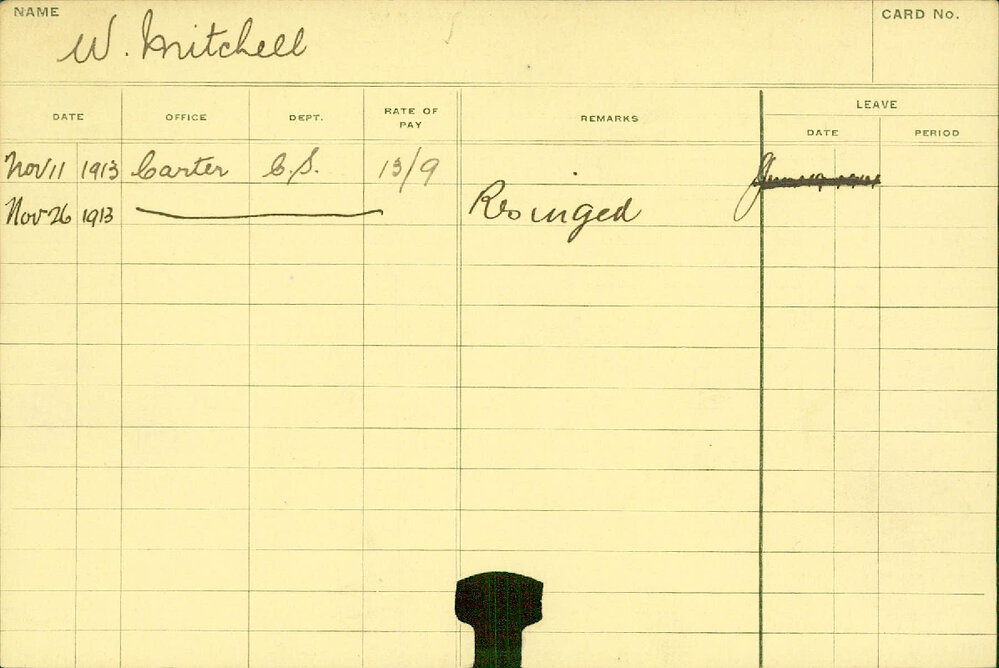 NAME
CARD No.
W. Mitchell
DATE OFFICE DEPT. RATE OF PAY REMARKS LEAVE
DATE PERIOD
Nov 11 1913 Carter C.S. 13/9
Nov 26 1913 Resinged